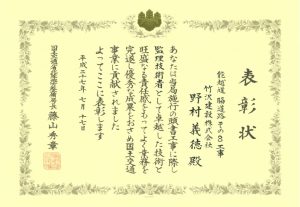 表彰状
能越道 脇道路その8工事
竹沢建設株式会社
野村義徳 殿
あなたは当局施行の頭書工事に際し
監理技術者として卓越した技術と
旺盛なる責任感をもってよく業務を
完遂し優秀な成果をおさめ国土交通
事業に貢献されました
よってここに表彰します
平成二十七年七月十七日
国土交通省北陸地方整備局長 藤山秀章